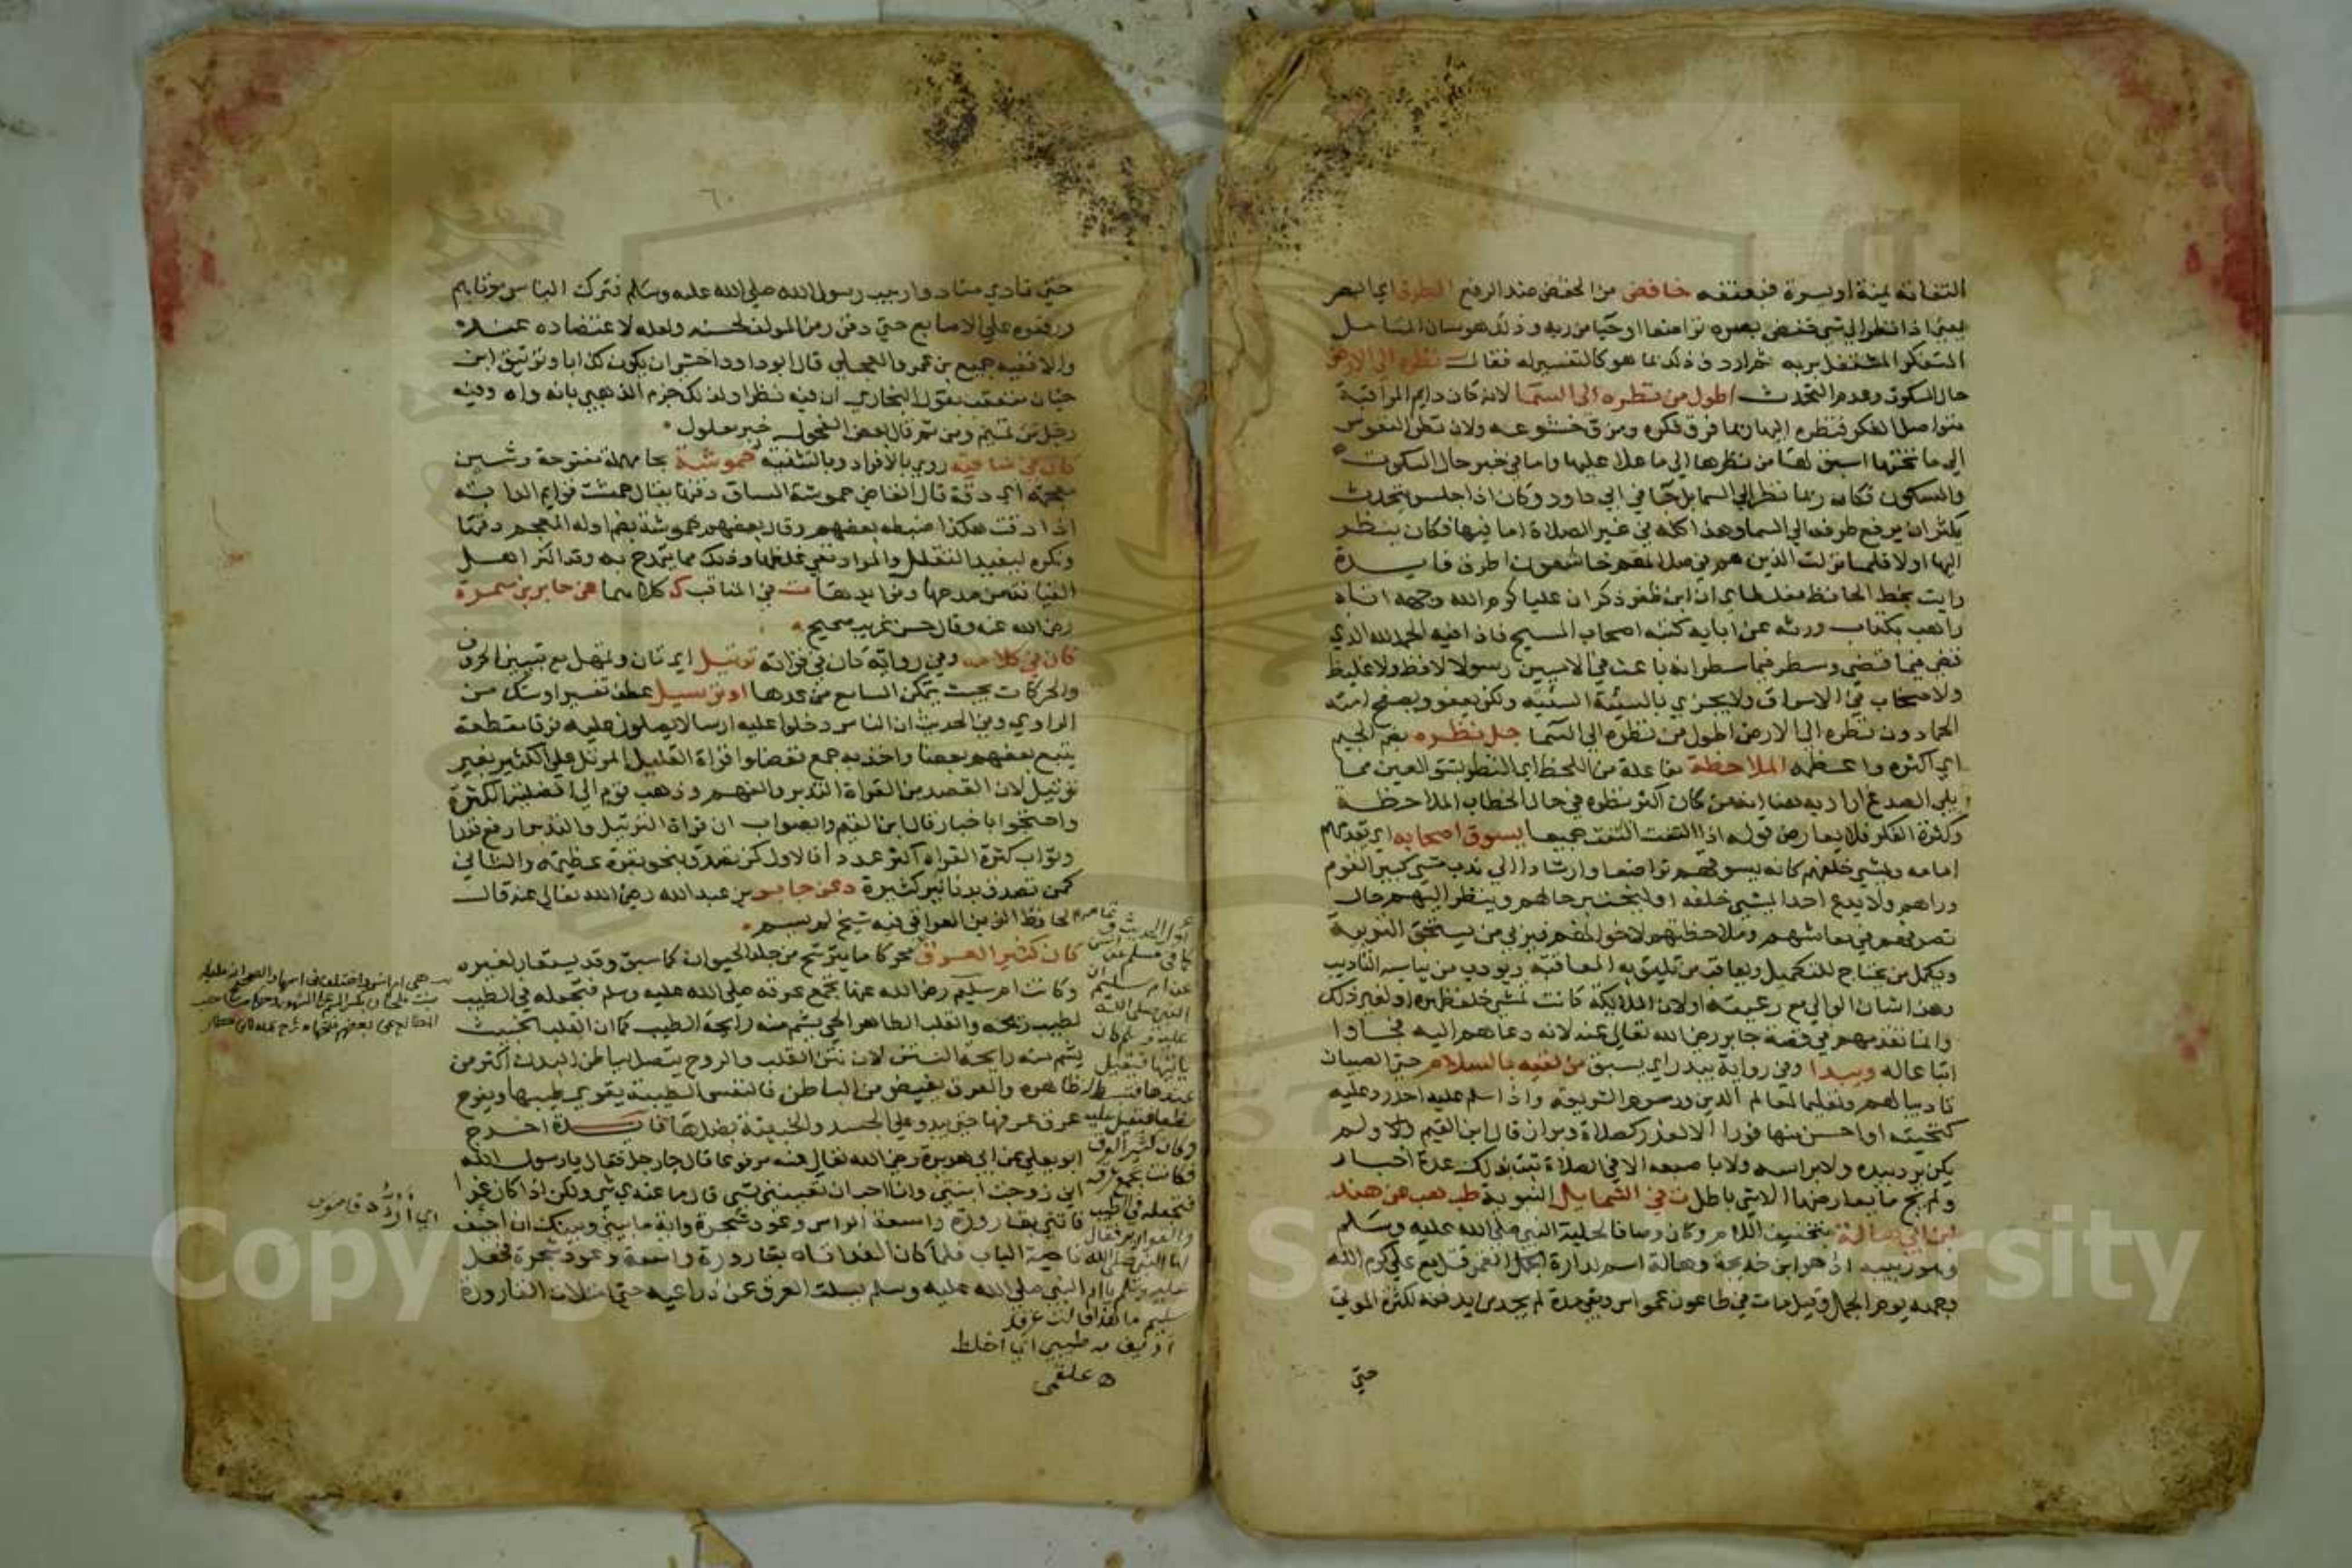 التفاته يمنة او يسرة فبعنقه خافض من الخفض ضد الرفع الطرف اي البصر
يعني اذا نظر الي شي خفض بصره تواضعا او حيا من ربه وذلك هو شان المتامل
المتفكر المشتغل بربه ثم اردف ذلك بما هو كالتفسير له فقال نظره الى الارض
حال السكوت وعدم التحدث اطول من نظره الى السما لانه كان دايم المراقبة
متواصل الفكر فنظره اليها ربما فرق فكره ومزق خشوعه ولان نظر النفوس
الي ما تحتها اسبق لها من نظرها الي ما علا عليها واما في غير حال السكوت
والسكون فكان ربما نظر الي السما بل جا في ابي داود وكان اذا جلس يتحدث
يكثر ان يرفع طرفه الي السما وهذا كله في غير الصلاة اما فيها فكان ينظر
اليها اولا فلما نزلت الذين هم في صلاتهم خاشعون اطرق فايدة
رايت بخط الحافظ مغلطاي ان ابن ظفر ذكر ان عليا كرم الله وجهه اتاه
راهب بكتاب ورثه عن ابايه كتبه اصحاب المسيح فاذا فيه الحمد لله الذي
قضي فيما قضي وسطر فيما سطر انه باعث في الاميين رسولا لا فظ ولا غليظ
ولا صخاب في الاسواق ولا يجزي بالسيئة السيئة ولكن يعفو ويصفح امته
الحمادون نظره الي الارض اطول من نظره الى السما جل نظره بضم الجيم
اي اكثره واعظمه الملاحظة مفاعلة من اللحظ اي النظر بشق العين مما
يلي الصدغ اراد به هنا انه من كان اكثر نظره في حال الخطاب الملاحظة
وكثرة الفكر فلا يعارض قوله اذا التفت التفت جميعا يسوق اصحابه اي يقدمهم
امامه ويمشي خلفهم كانه يسوقهم تواضعا وارشادا الي ندب مشي كبير القوم
وراهم ولا يدع احدا يمشي خلفه او ليختبر حالهم وينظر اليهم حال
تصرفهم في معاشهم وملاحظتهم لاخوانهم فيربي من يستحق التربية
ويكمل من يحتاج للتكميل ويعاقب من تليق به المعاقبة ويودب من يناسبه التاديب
وهذا شان الوالي مع رعيته او لان الملائكة كانت تمشي خلف ظهره او لغير ذلك
وانما تقدمهم في قصة جابر رضي الله تعالي عنه لانه دعاهم اليه فجاوا
اتباعا له ويبدا وفي رواية يبدر اي يسبق من لقيه بالسلام حتي الصبيان
تاديبا لهم وتعليما لمعالم الدين ورسوم الشريعة واذا سلم عليه احد رد عليه
كتحيته او احسن منها فورا الا لعذر كصلاة وبراز قال ابن القيم ولم
يكن يرد بيده ولا براسه ولا باصبعه الا في الصلاة ثبت بذلك عدة اخبار
ولم يجي ما يعارضها الا بشي باطل ت في الشمايل النبوية طب هب عن هند
ابن ابي هالة بتخفيف اللام وكان وصافا لحلية النبي صلي الله عليه وسلم
وهو ربيبه اذ هو ابن خديجة وهالة اسم لدارة القمر قتل مع علي كرم الله
وجهه يوم الجمل وقيل مات في طاعون عمواس وبقي مدة لم يجد من يدفنه لكثرة الموتي
حتي
٦٠
حتي نادي مناد واربيب رسول الله صلي الله عليه وسلم فترك الناس موتاهم
ورفعوه علي الاصابع حتي دفن رمز المولف لحسنه ولعله لاعتضاده عنده
والا ففيه جميع بن عمرو العجلي قال ابو داود اخشي ان يكون كذابا وتوثيق ابن
حبان متعقب بقول البخاري ان فيه نظر ولذلك جزم الذهبي بانه واه وفيه
رجل من تميم ومن ثم قال بعض الفحول خبر معلول
كان في ساقيه روي بالافراد وبالتثنية حموشة بحا مهملة مفتوحة وشين
معجمة اي دقة قال القاضي حموشة الساق دقتها يقال حمشت قوايم الدابة
اذا دقت هكذا ضبطه بعضهم وقال بعضهم خموشة بضم اوله المعجم دقتها
ونكره ليفيد التقليل والمراد نفي غلظها وذلك مما يتمدح به وقد اكثر اهل
القيافة من مدحها وفوايدها ت في المناقب ك كلاهما عن جابر بن سمرة
رضي الله عنه وقال حسن غريب صحيح
كان في كلامه وفي رواية كان في قراته ترتيل اي تان وتمهل مع تبيين الحروف
والحركات بحيث يتمكن السامع من عدها او ترسيل عطف تفسير او شك من
الراوي وفي الحديث ان الناس دخلوا عليه ارسالا يصلون عليه فرقا مقطعة
يتبع بعضهم بعضا واخذ به جمع ففضلوا قراة القليل المرتل علي الكثير بغير
ترتيل لان القصد من القراة التدبر والفهم وذهب قوم الي افضلية الكثرة
واحتجوا باخبار قال ابن القيم والصواب ان قراة الترتيل والتدبر ارفع قدرا
وثواب كثرة القراة اكثر عددا فالاول كمن تصدق بجوهرة عظيمة والثاني
كمن تصدق بدنانير كثيرة د عن جابر بن عبد الله رضي الله تعالي عنه قال
الحافظ الزين العراقي فيه شيخ لم يسم
كان كثير العرق محركا ما يترشح من جلد الحيوان كما سبق وقد يستعار لغيره
وكانت ام سليم رضي الله عنها تجمع عرقه صلي الله عليه وسلم فتجعله في الطيب
لطيب ريحه والقلب الطاهر الحي يشم منه رايحة الطيب كما ان القلب الخبيث
يشم منه رايحة النتن لان نتن القلب والروح يتصل بباطن البدن اكثر من
ظاهره والعرق يفيض من الباطن فالنفس الطيبة يقوي طيبها ويفوح
عرف عرقها حتي يبدو علي الجسد والخبيثة بضدها فايدة اخرج
ابو يعلي عن ابي هريرة رضي الله تعالي عنه مرفوعا قال جا رجل فقال يا رسول الله
اني زوجت ابنتي وانا احب ان تعينني بشي قال ما عندي شي ولكن اذا كان غدا
فاتني بقارورة واسعة الراس وعود شجرة واية ما بيني وبينك ان اجيف
ناحية الباب فلما كان الغد اتاه بقارورة واسعة وعود شجرة فجعل
النبي صلي الله عليه وسلم يسلت العرق عن ذراعيه حتي امتلات القارورة
اول الحديث وتمامه
كما في مسلم عن انس
عن ام سليم ان
النبي صلي الله
عليه وسلم كان
ياتيها فيقيل
عندها فتبسط له
نطعا فيقيل عليه
وكان كثير العرق
فكانت تجمع عرقه
فتجعله في الطيب
والقوارير فقال
النبي صلي الله
عليه وسلم يا ام
سليم ما هذا قالت عرقك
اذيف به طيبي اي اخلط
ه علقمي
هي ام انس واختلف في اسمها
بنت ملحان بكسر الميم علي المشهور
اي ارده قاموس
Copyright © King Saud University